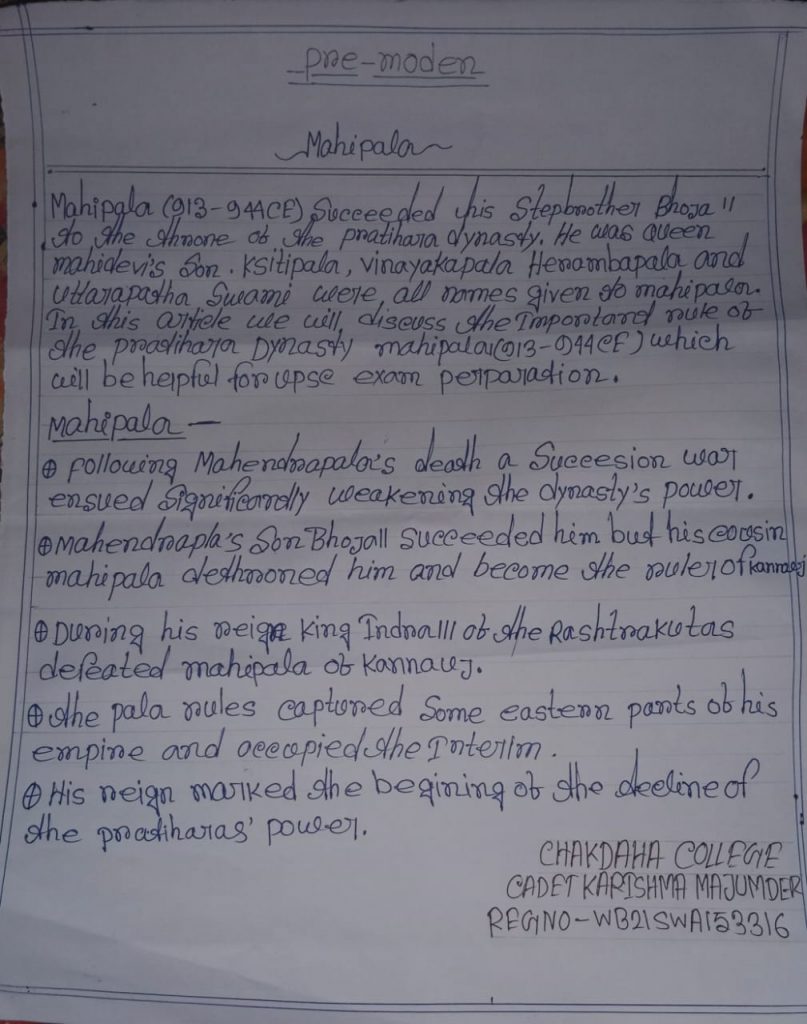 Pre-moden
Mahipala
Mahipala (913-944CE) Succeeded his Stepbrother Bhoja II
to the throne of the pratihara dynasty. He was Queen
mahidevi's Son. Ksitipala, vinayakapala Herambapala and
Uttarapatha Swami were all names given to mahipala.
In this article we will discuss the Important rule of
the pratihara Dynasty mahipala(913-944CE) which
will be helpful for upse exam perparation.
Mahipala -
⊕ following Mahendrapala's death a Succesion war
ensued Significantly weakening the dynasty's power.
⊕ Mahendrapla's Son BhojaII succeeded him but his cousin
mahipala dethroned him and become the ruler of kannauj
⊕ During his reign King IndraIII of the Rashtrakutas
defeated mahipala of Kannauj.
⊕ the pala rules captured Some eastern parts of his
empire and occupied the Interim.
⊕ His reign marked the begining of the decline of
the pratiharas' power.
CHAKDAHA COLLEGE
CADET KARISHMA MAJUMDER
REGNO-WB21SWA153316